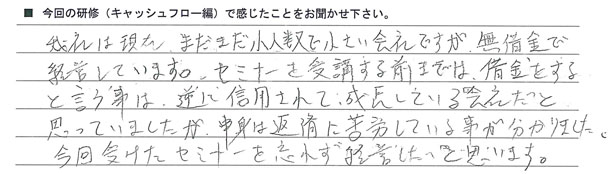 ■ 今回の研修（キャッシュフロー編）で感じたことをお聞かせ下さい。
我社は現在、まだまだ小人数で小さい会社ですが、無借金で
経営しています。セミナーを受講する前までは、借金をする
と言う事は、逆に信用されて、成長している会社だと
思っていましたが、中身は返済に苦労している事が分かりました。
今回受けたセミナーを忘れず経営したいと思います。